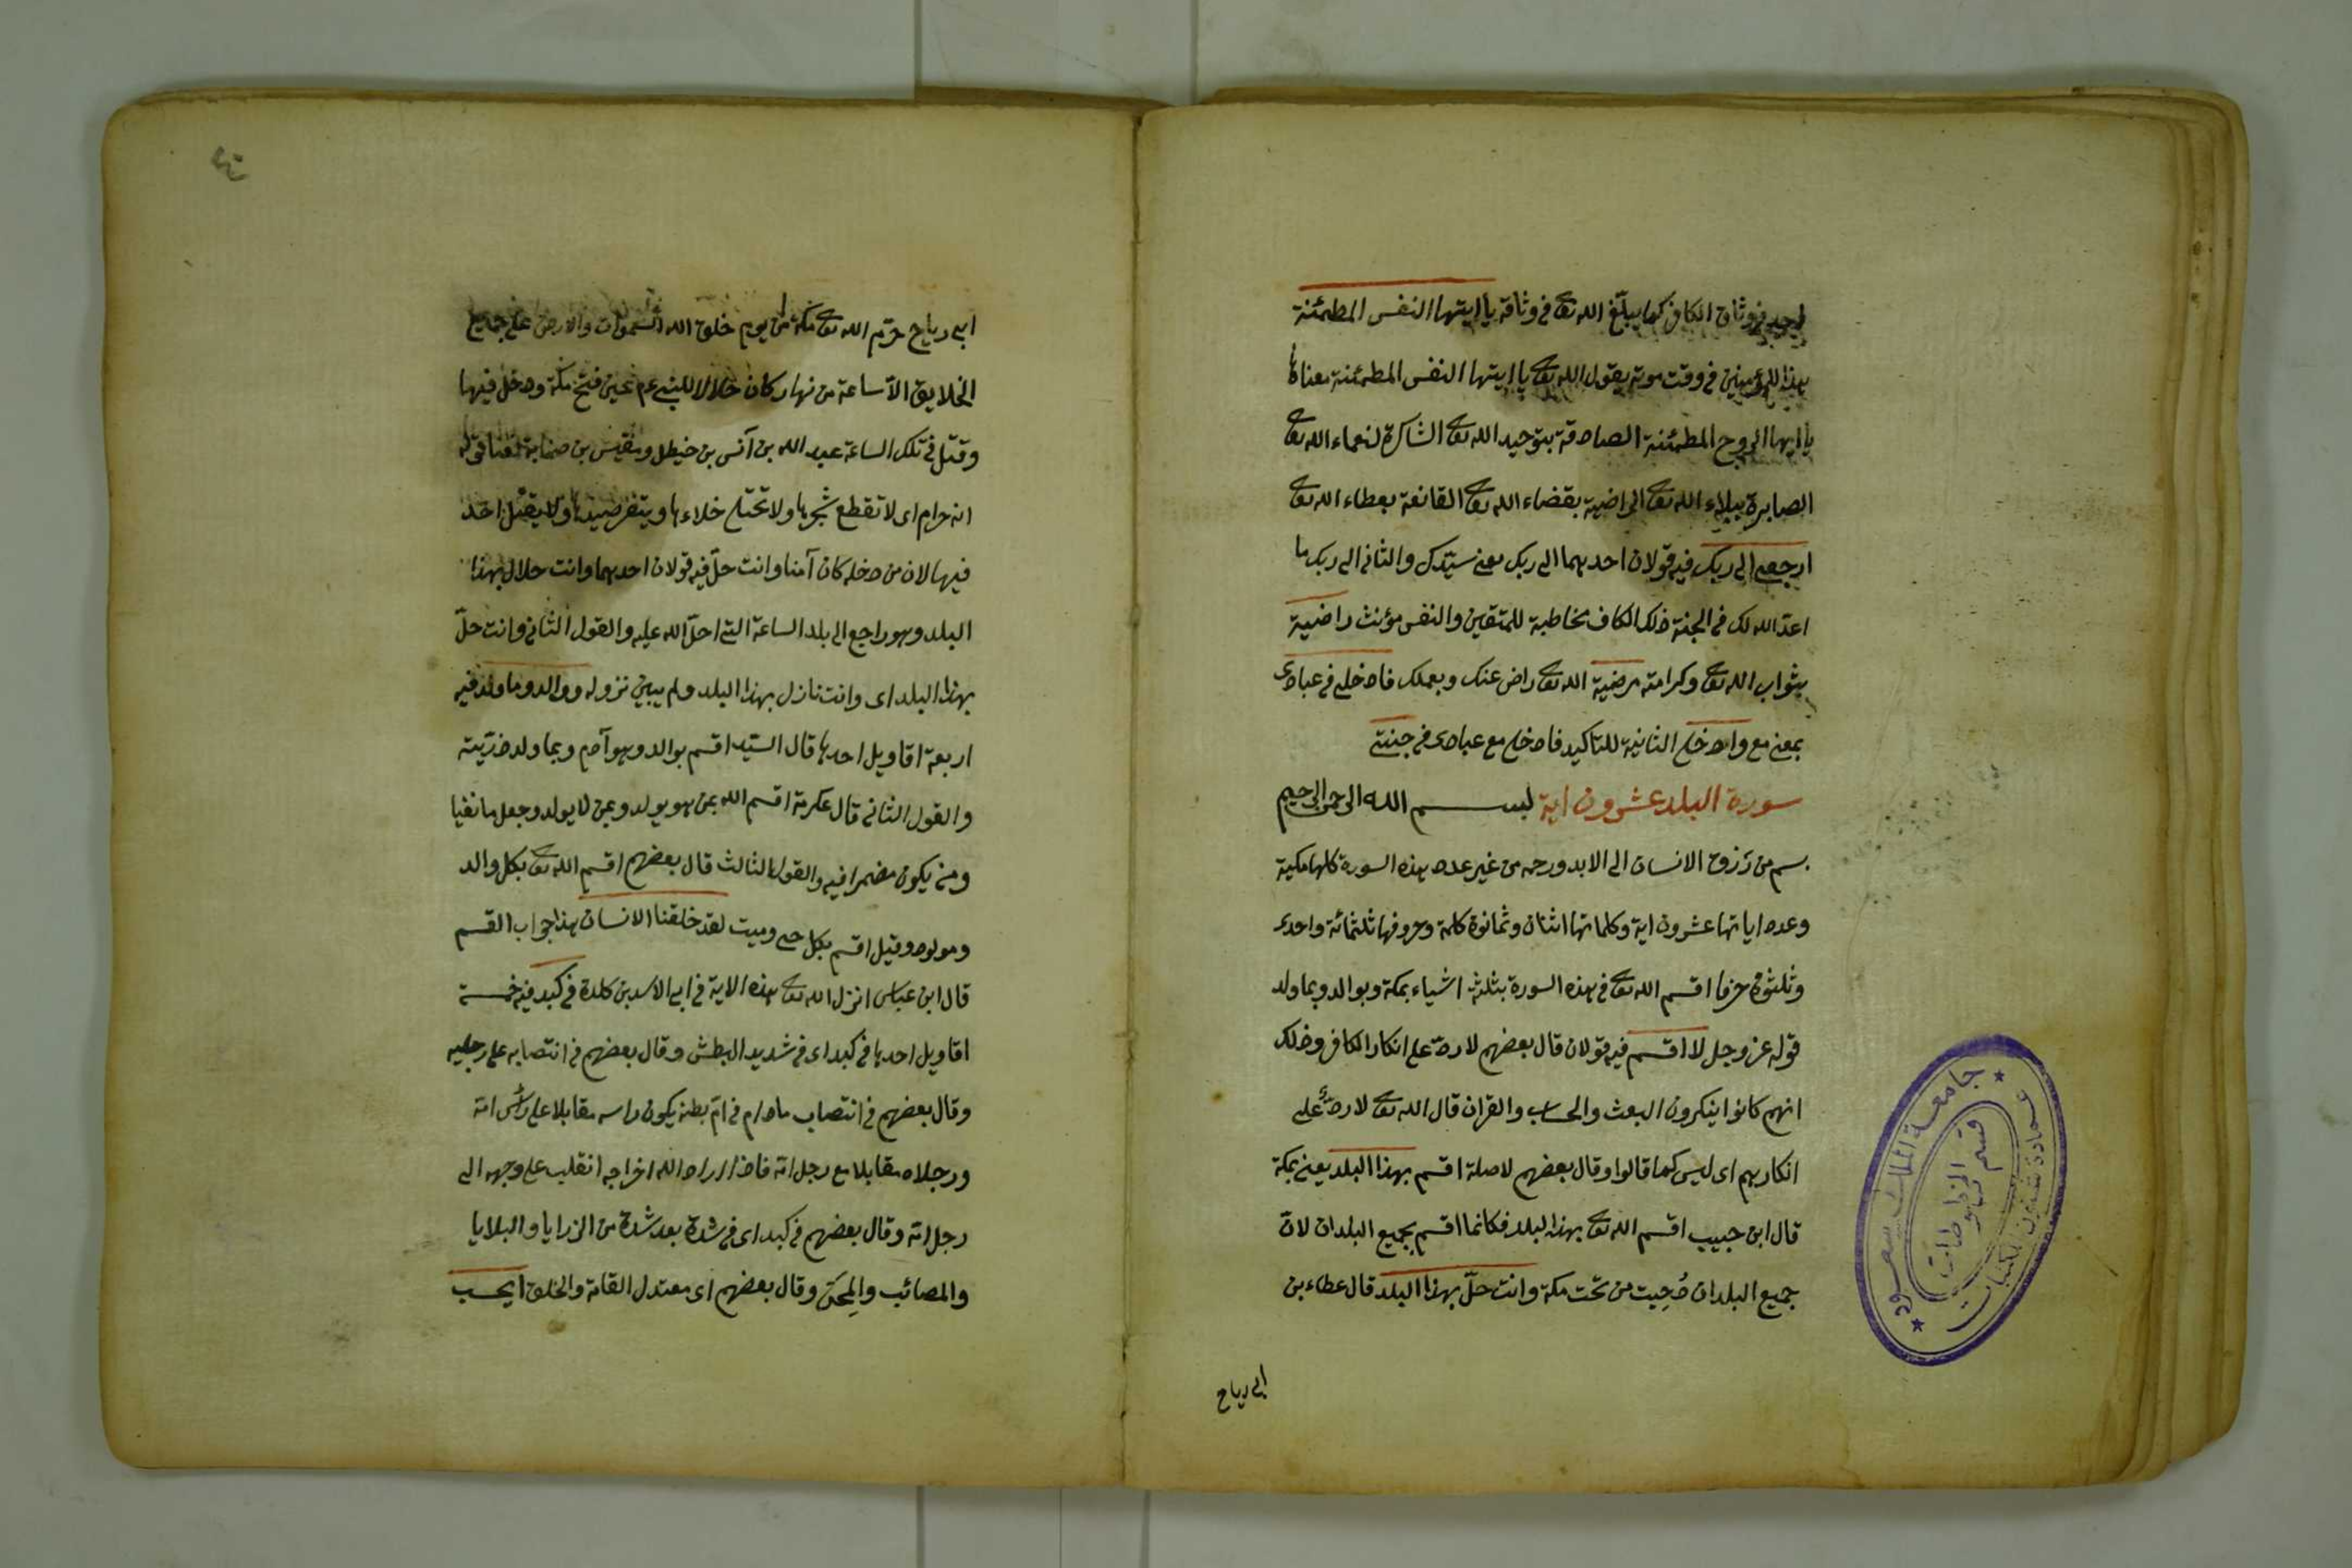 فى وثاق الكافر كما يبلّغ الله تع فى وثاقه يا ايتها النفس المطمئنة
بهذا للمؤمنين فى وقت موته يقول الله تع يا ايتها النفس المطمئنة معناها
يا ايها الروح المطمئنة الصادقة بتوحيد الله تع الشاكرة لنعماء الله تع
الصابرة ببلاء الله تع الراضية بقضاء الله تع القانعة بعطاء الله تع
ارجعى الى ربك فيه قولان احدهما الى ربك يعنى سيّدك والثانى الى ربك ما
اعدّ الله لك فى الجنة ذلك الكاف مخاطبة للمتقين والنفس مؤنث راضية
بثواب الله تع وكرامته مرضية الله تع راض عنك وبعملك فادخلى فى عبادى
بمعنى مع وادخلى الثانية للتاكيد فادخلى مع عبادى فى جنتى
سورة البلد عشرون اية بسم الله الرحمن الرحيم
بسم من رزق الانسان الى الابد ورحمه من غير عدد هذه السورة كلها مكية
وعدد اياتها عشرون اية وكلماتها اثنان وثمانون كلمة وحروفها ثلثمائة واحدى
وثلثون حرفا اقسم الله تع فى هذه السورة بثلثة اشياء بمكة وبوالد وبما ولد
قوله عز وجل لا اقسم فيه قولان قال بعضهم لا ردّ على انكار الكافر وذلك
انهم كانوا ينكرون البعث والحساب والقران قال الله تع لا ردّ على
انكارهم اى ليس كما قالوا وقال بعضهم لا صلة اقسم بهذا البلد يعنى بمكة
قال ابن حبيب اقسم الله تع بهذا البلد فكانما اقسم بجميع البلدان لانّ
جميع البلدان دُحِيت من تحت مكة وانت حلّ بهذا البلد قال عطاء بن
ابى رباح
جامعة الملك سعود
عمادة شئون المكتبات
قسم المخطوطات
ابى رباح حرّم الله تع مكة من يوم خلق الله السموات والارض على جميع
الخلايق الّا ساعة من نهار كان حلالا للنبى عم حين فتح مكة ودخل فيها
وقتل فى تلك الساعة عبد الله بن آنس بن خيطل ومقيس بن
انه حرام اى لا تقطع شجرها ولا تختلى خلاءها وينفر صيدها ولا يقتل احد
فيها لان من دخله كان آمنا وانت حلّ فيه قولان احدهما وانت حلال بهذا
البلد وهو راجع الى بلد الساعة التى احلّ الله عليه والقول الثانى وانت حلّ
بهذا البلد اى وانت نازل بهذا البلد ولم يبين نزوله ووالد وما ولد فيه
اربعة اقاويل احدها قال السّيد اقسم بوالد وهو آدم وبما ولد ذرّيته
والقول الثانى قال عكرمة اقسم الله بمن هو يولد وبمن لا يولد وجعل ما نفيا
ومن يكون مضمرا فيه والقول الثالث قال بعضهم اقسم الله تع بكل والد
ومولود وقيل اقسم بكل حى وميت لقد خلقنا الانسان هذا جواب القسم
قال ابن عباس انزل الله تع هذه الاية فى ابى الاسد بن كلدة فى كبد فيه خمسة
اقاويل احدها فى كبد اى فى شديد البطش وقال بعضهم فى انتصابه على رجليه
وقال بعضهم فى انتصاب مادام فى امّ بطنه يكون راسه مقابلا على راس امّه
ورجلاه مقابلا مع رجل امّه فاذا اراد الله اخراجه انقلب على وجهه الى
رجل امّه وقال بعضهم فى كبد اى فى شدة بعد شدة من الرزايا والبلايا
والمصائب والمِحَن وقال بعضهم اى معتدل القامة والخلق ايحسب